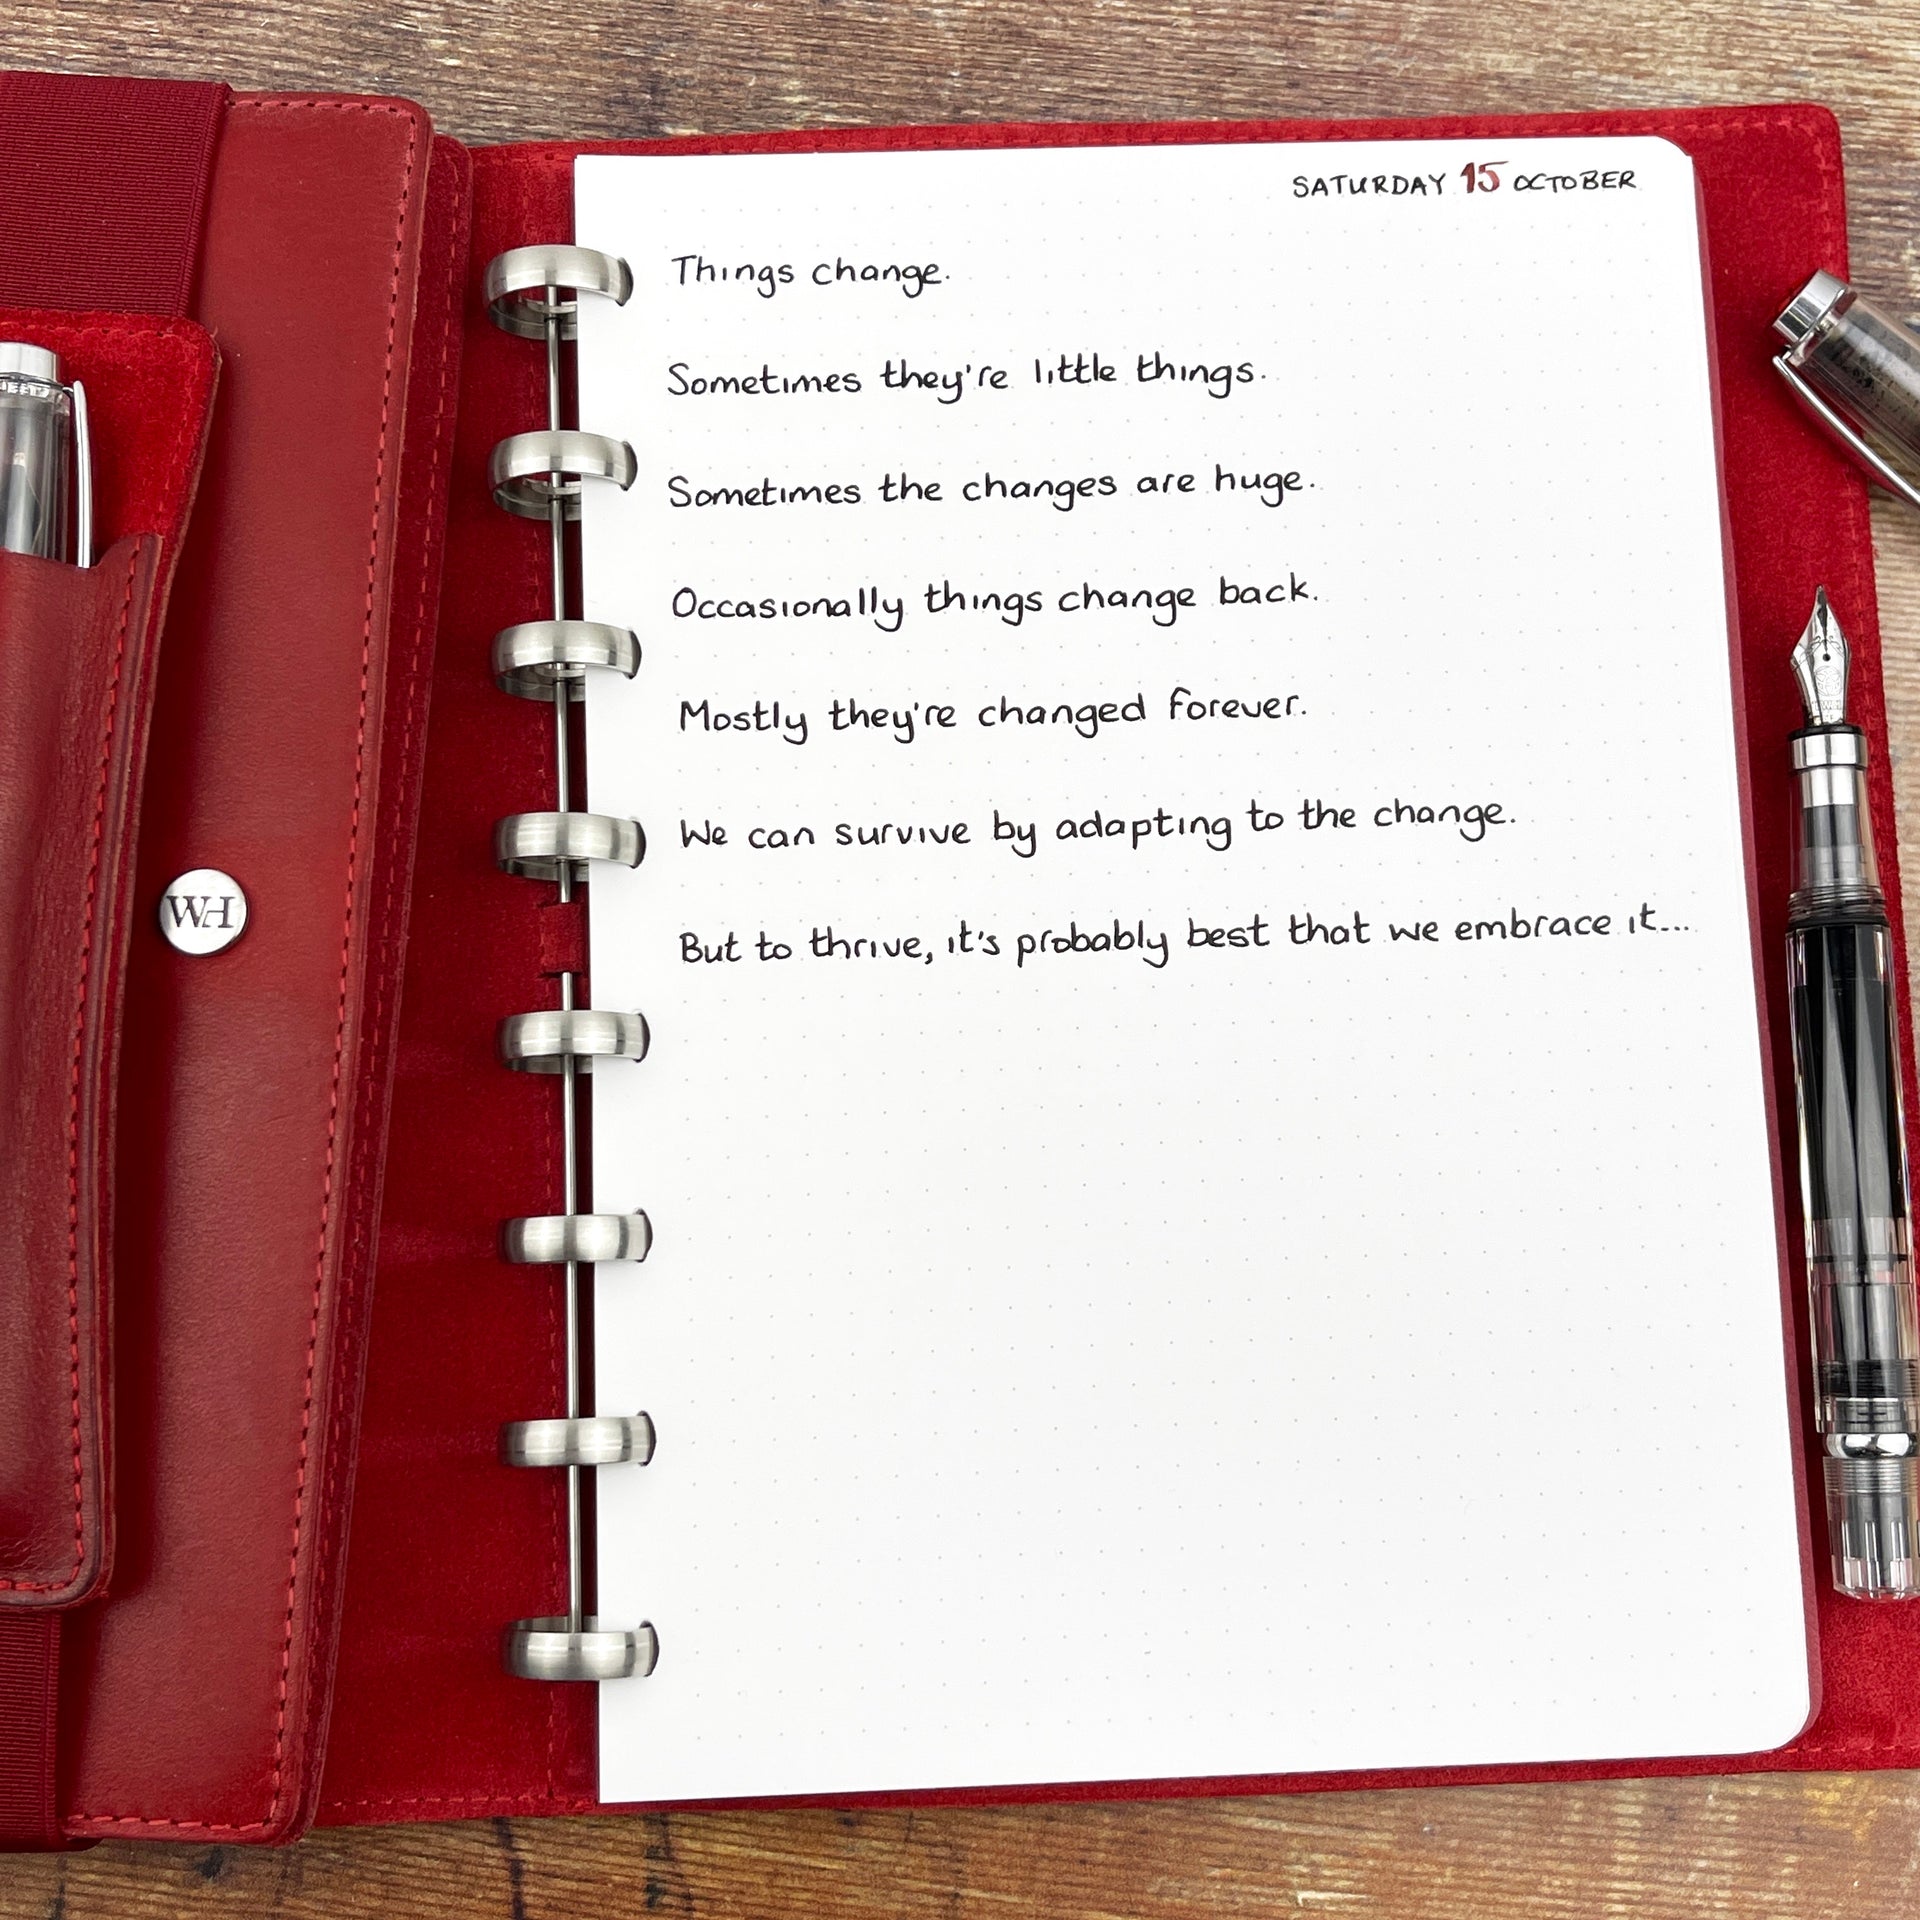 SATURDAY 15 OCTOBER
Things change.
Sometimes they're little things.
Sometimes the changes are huge.
Occasionally things change back.
Mostly they're changed forever.
We can survive by adapting to the change.
But to thrive, it's probably best that we embrace it...
WH